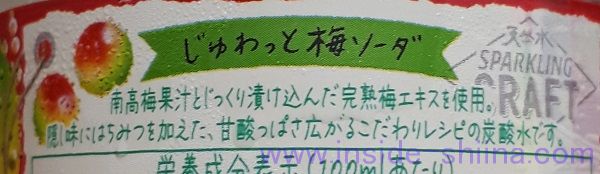 じゅわっと梅ソーダ
天然水
SPARKLING
CRAFT
南高梅果汁とじっくり漬け込んだ完熟梅エキスを使用。
隠し味にはちみつを加えた、甘酸っぱさ広がるこだわりレシピの炭酸水です。
栄養成分表示(100mlあたり)
www.inside-shiina.com